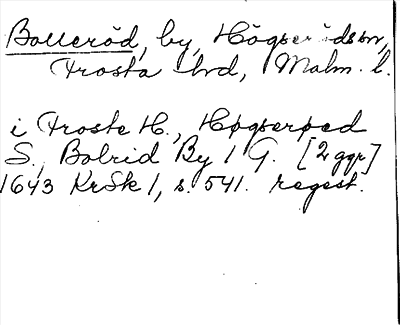 Bolleröd, by, Högserödssn,
Frosta hd, Malm. l.
i Froste H., Høgserøed
S., Bolrid By 1 G. [2 ggr]
1643 KrSk 1, s. 541. regest.